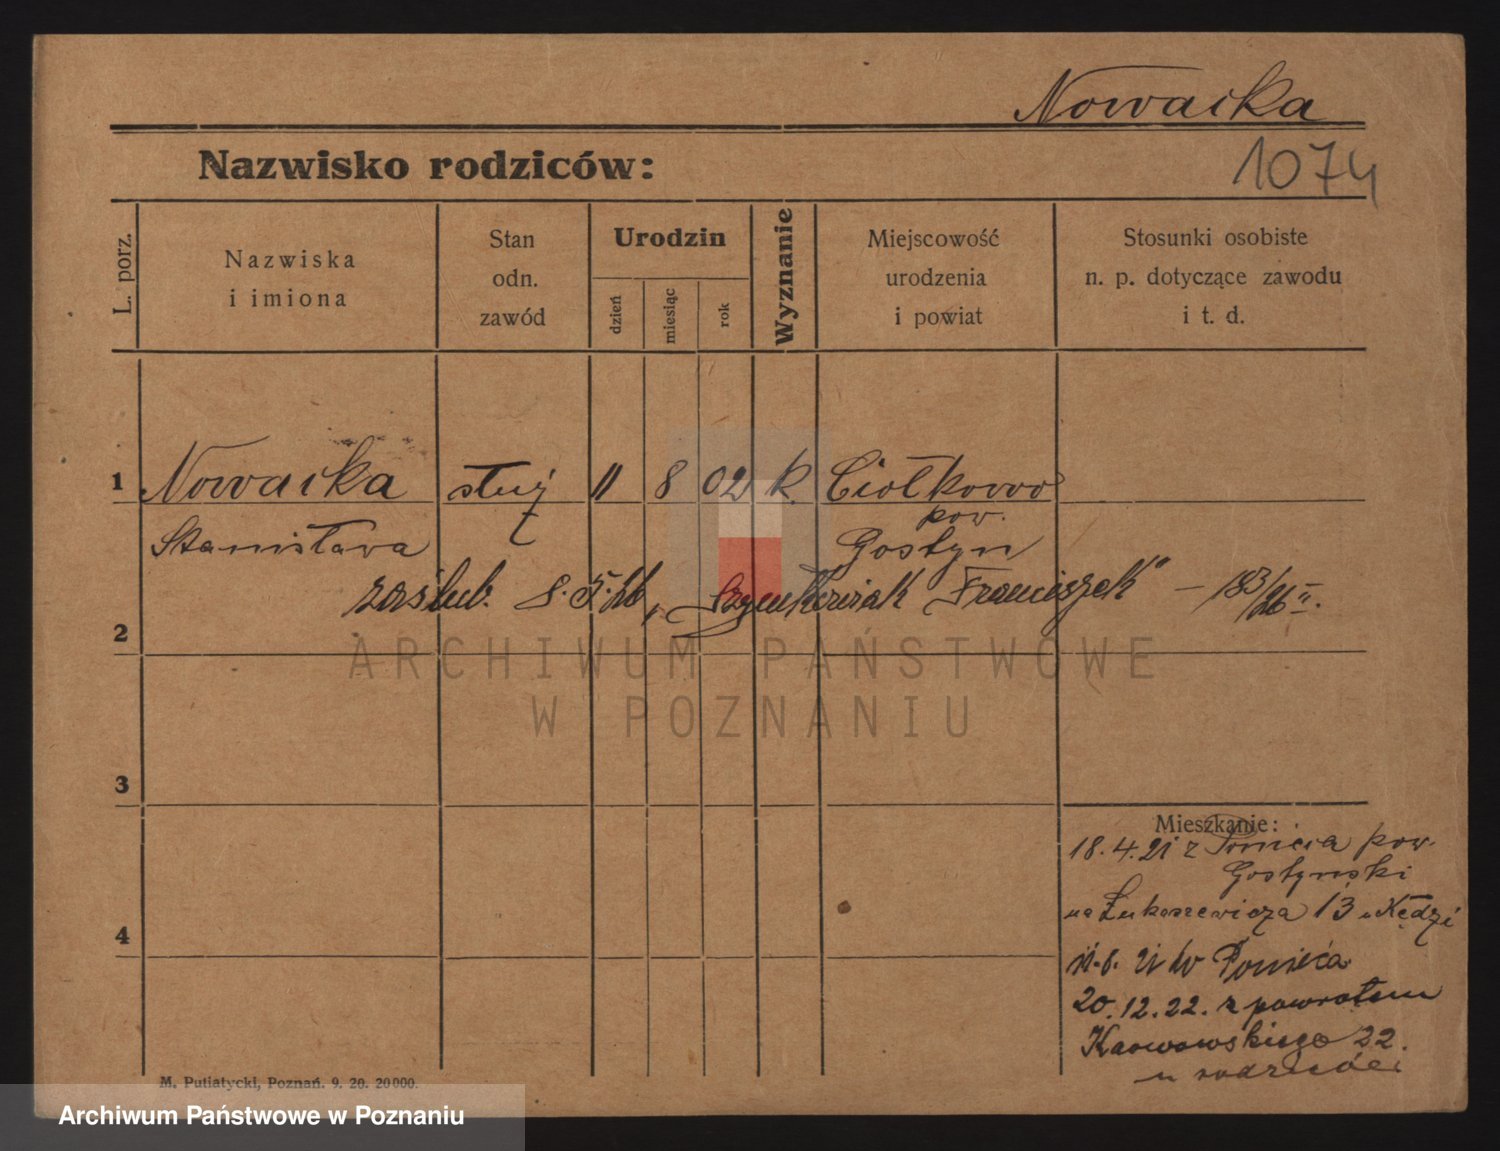 Nowacka
Nazwisko rodziców:
1074
L. porz.
Nazwiska
i imiona
Stan
odn.
zawód
Urodzin
dzień
miesiąc
rok
Wyznanie
Miejscowość
urodzenia
i powiat
Stosunki osobiste
n. p. dotyczące zawodu
i t. d.
1 Nowacka służ 11 8 02 k. Ciołkowo
pow.
Stanisława Gostyn
zaślub. 8.5.26 „Szymkowiak Franciszek" — 183/26 II.
2
ARCHIWUM PAŃSTWOWE
W POZNANIU
3
Mieszkanie:
18.4.21 z Ponieca pow.
Gostyński
na Łukaszewicza 13 u Kędzi
4
21 do Ponieca
20.12.22. z powrotem
Karwowskiego 22.
u rodziców
M. Putiatycki, Poznań. 9. 20. 20000.
Archiwum Państwowe w Poznaniu